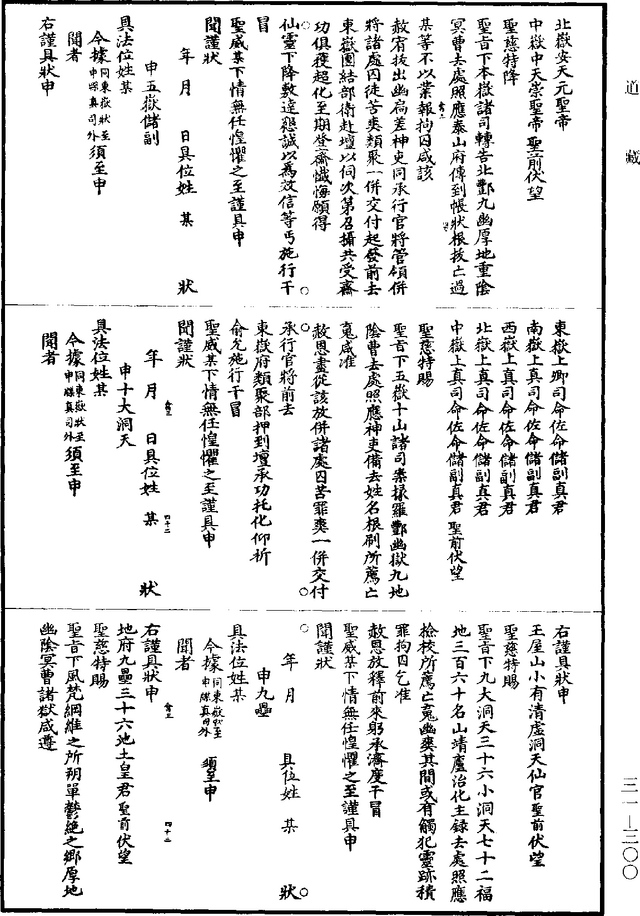 道藏
北嶽安天元聖帝
中嶽中天崇聖帝 聖前伏望
聖慈特降
聖旨下本嶽諸司轉告北酆九幽厚地重陰
冥曹去處照應泰山府傳到帳狀根拔亡過
某等不以業報拘囚咸該
赦宥拔出幽扃差神吏同承行官將管領併
將諸處囚徒苦爽類聚一併交付起發前去
東嶽團結部衛赴壇以伺次第召攝共受齋
功俱獲超化至期登齋懺悔願得
仙靈下降敷達懇誠以為效信等丐施行干
冒
聖威某下情無任惶懼之至謹具申
聞謹狀
年 月 日具位姓 某 狀
申五嶽儲副
具法位姓某
今據同東嶽狀至申牒真司外須至申
聞者
右謹具狀申
東嶽上卿司命佐命儲副真君
南嶽上真司命佐命儲副真君
西嶽上真司命佐命儲副真君
北嶽上真司命佐命儲副真君
中嶽上真司命佐命儲副真君 聖前伏望
聖慈特賜
聖旨下五嶽十山諸司案據羅酆幽獄九地
陰曹去處照應神吏備去姓名根刷所薦亡
䰟咸准
赦恩畫從該放併諸處囚苦罪爽一併交付
承行官將前去
東嶽府類聚部押到壇承功托化仰祈
俞允施行干冒
聖威某下情無任惶懼之至謹具申
聞謹狀
年 月 日具位姓 某 狀
四十二
申十大洞天
具法位姓某
今據同東嶽狀至申牒真司外須至申
聞者
右謹具狀申
王屋山小有清虛洞天仙官聖前伏望
聖慈特賜
聖旨下九大洞天三十六小洞天七十二福
地三百六十名山靖廬治化主録去處照應
檢校所薦亡䰟幽爽其間或有觸犯靈跡積
罪拘囚乞准
赦恩放釋前來躬承濟度干冒
聖威某下情無任惶懼之至謹具申
聞謹狀
年 月 具位姓 某 狀
申九壘
具法位姓某
今據同東嶽狀至申牒真司外須至申
聞者
右謹具狀申
地府九壘三十六池土皇君聖前伏望
聖慈特賜
聖旨下風梵綱維之所朔單鬱絶之鄉厚地
幽陰冥曹諸獄咸遵
三一—三〇〇